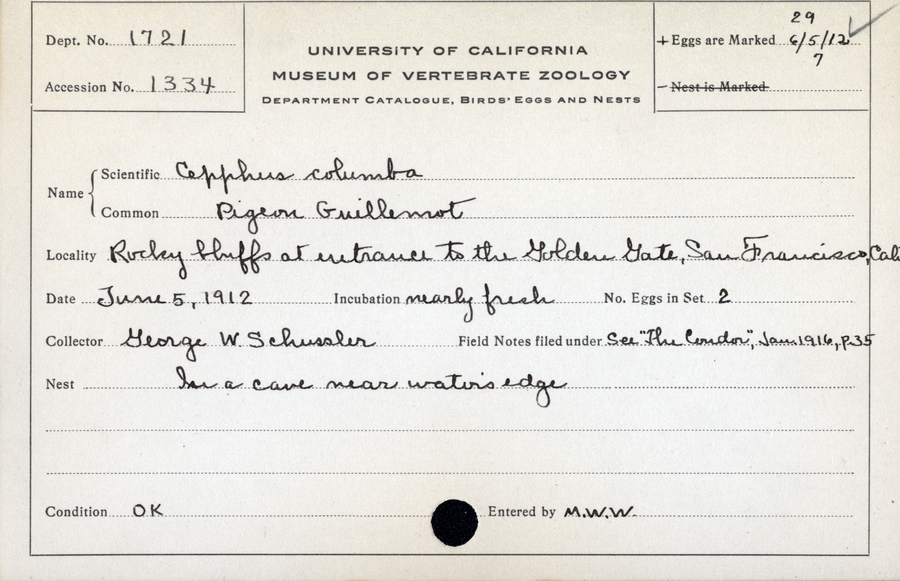 Dept. No. 1721
Accession No. 1334
UNIVERSITY OF CALIFORNIA
MUSEUM OF VERTEBRATE ZOOLOGY
DEPARTMENT CATALOGUE, BIRDS' EGGS AND NESTS
29
+ Eggs are Marked 6/5/12
7
– Nest is Marked
Name
Scientific Cepphus columba
Common Pigeon Guillemot
Locality Rocky bluffs at entrance to the Golden Gate, San Francisco, Cali
Date June 5, 1912 Incubation nearly fresh No. Eggs in Set 2
Collector George W. Schussler Field Notes filed under See "The Condor", Jan. 1916, p.35
Nest In a cave near water's edge
Condition OK Entered by M.W.W.